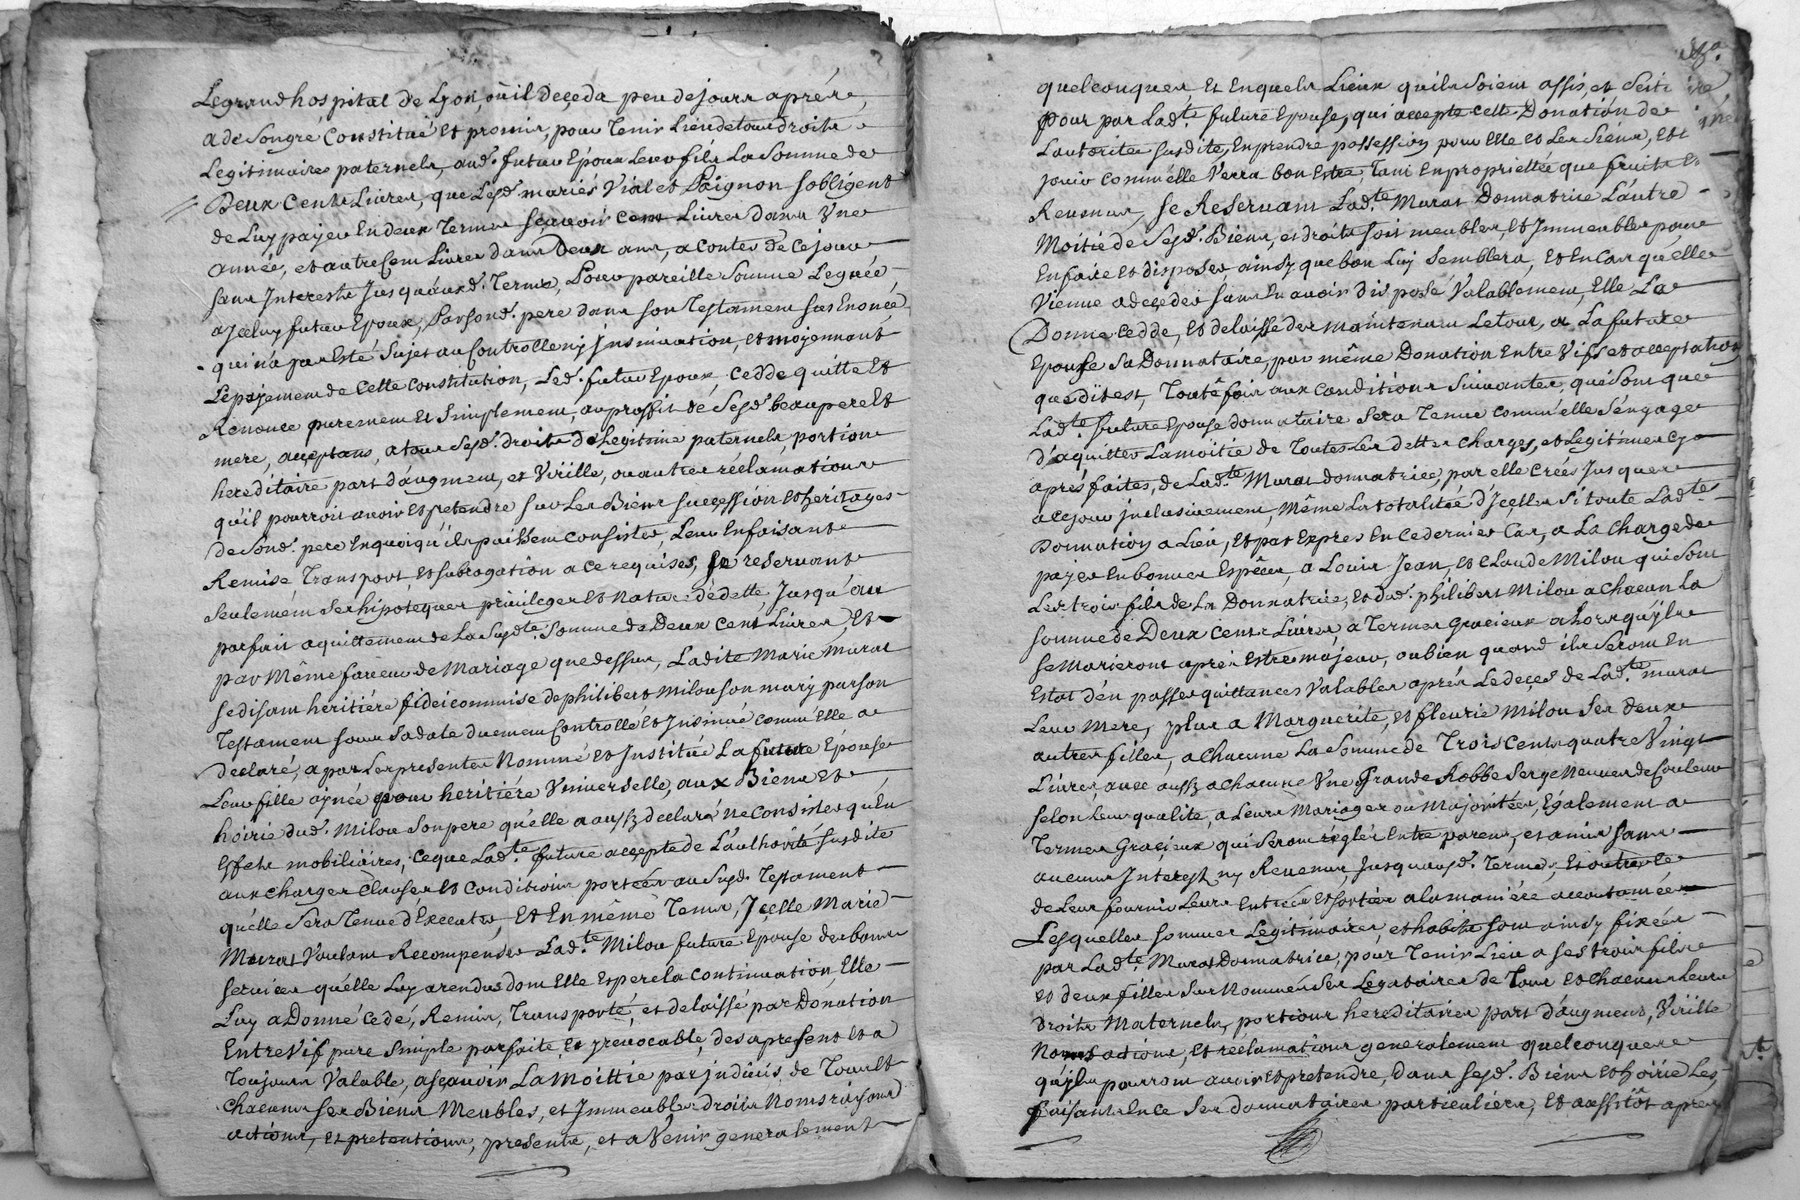 Legrand hospital de Lyon, ou il deçeda peu de jours aprés,
a de Son gré Constitué Et promis, pour Tenir Lieu de tous droits
Legitimaires paternels, aud. futur Epoux Leur fils La Somme de
Deux Cents Livres, que Lesd. mariés Vial et Poignon sobligent
de Luy payer En deux Termes sçauoir Cent Livres dans Vne
année, et autres Cent Livres dans Deux ans, a Contés de Ce jour
sans Interests Jusquauxd. Termes, Pour pareille Somme Leguée
a Jceluy futur Epoux, Par sond. pere dans son Testament sus Enoncé
qui n'a pas Esté Sujet au Controlle ny jnsinuation, et moyennant
Le payement de Cette Constitution, Led. futur Epoux, Cedde quitte Et
Renonce purement Et Simplement, au proffit de Sesd. beaupere Et
mere, acceptans, a tous Sesd. droits de Legitime paternels, portion
hereditaire part d'augment, et Virille, ou autres réclamations
qu'il pourroit avoir Et pretendre sur Les Biens succession Et heritages
de Sond. pere En quoi qu'ils puissent Consister, Leur En faisant
Remise Transport Et subrogation a Ce requises, se reservant
seulement Ses hipoteques priuileges Et nature de dette, Jusqu'au
parfait aquittement de La Susdte. Somme de Deux Cent Livres, Et
par Même faueur de Mariage que dessus, Ladite Marie Murat
se disant héritiére fideicommise de philibert Milou son mary par son
Testament sous Sa date duement Controllé Et Jnsinué Comme Elle a
declaré, a par Les presentes Nommé Et Institué La future Epouse
Leur fille aynée pour heritiére Vniverselle, aux Biens Et
hoirie dud. Milou Son pere qu'elle a aussy declaré ne Consister qu'En
Effets mobiliaires, Ce que Ladte. future accepte de L'authorité susdite
aux Charges Clauses Et Conditions portées au Susd. Testament
qu'elle Sera Tenue d'Exccuter, Et En même Tems, Jcelle Marie
Murat Voulant Recompenser Ladte. Milou future Epouse des bons
services qu'elle Luy a rendus dont Elle Espere la Continuation Elle
Luy a Donné Cedé, Remis, Transporté, et delaissé par Donation
Entre Vif pure Simple parfaite, Et yrevocable, des apresent Et a
Toujours Valable, asçauoir La Moittie par jndiuis de Tous Et
Chacuns ses Biens Meubles, et Immeubles droits Noms raisons
actions, Et pretentions, presents, et a Venir generalement
quelconques Et En quels Lieux qu'ils Soient assis, et Scit
pour par Ladte. future Epouse, qui accepte Cette Donation de
Lautorité susdite, En prendre possession pour Elle Et Les Siens, Et
jouir Comm'elle Verra bon Estre Tant En proprietée que fruits Et
Revenus, se Reservant Ladte. Murat Donnatrice L'autre
Moitié de Sesd. Biens, et droits soit meubles, Et Immeubles pour
En faire Et disposer ainsy que bon Luy Semblera, Et En Cas qu'elle
Vienne a deçeder sans En avoir disposé Valablement, Elle La
Donne Cedde, Et delaisse des maintenant Le tout, a La future
Epouse Sa Donnataire, par même Donation Entre Vifs et acceptation
que dit est, Toutefois aux Conditions Suivantes, qui sont que
Ladte. future Epouse donnataire Sera Tenue Comm'elle S'engage
d'aquitter La moitié de Toutes Les dettes Charges, et Legitimes Cy
aprés faites, de Ladte. Murat donnatrice, par elle Créés Jusques
a Ce jour jnclusivement, Même La totalité d'Jçelles Si toute Ladte.
Donnation a Lieu, Et par Exprés En Ce dernier Cas, a La Charge de
payer En bonnes Espéces, a Louis Jean, Et Claude Milou qui Sont
Les trois fils de La Donnatrice, Et dud. philibert Milou a Chacun La
somme de Deux Cents Livres, a Termes Gracieux a Lors qu'ils
se Marieront aprés Estre majeur, ou bien quand ils Seront En
Estat d'en passer quittances Valables aprés Le deçes de Ladte. murat
Leur Mere, plus a Marguerite, Et fleurie Milou Ses deux
autres filles, a Chacune La Somme de Trois Cents quatre Vingt
Livres, auec aussy a Chacune Vne Grande Robbe Serge Neuue de Couleur
selon Leur qualité, a Leurs Mariages ou Majoritées, Egalement a
Termes Gracieux qui Seront réglés Entre parens, et amis sans
aucuns Interest ny Revenus Jusquausd. Termes, Et outre ce
de Leur fournir Leurs Entrées Et Sorties a la maniére accoutumée
Lesquelles Sommes Legitimaires, et habits sont ainsy fixées
par Ladte. Murat Donnatrice, pour Tenir Lieu a ses trois fils
et deux filles Sus Nommés Ses Legataires de Tous Et Chacuns Leurs
droits Maternels, portions hereditaires part d'augment, Virille
Noms actions, Et réclamations generalement quelconques
qu'ils pourront avoir Et pretendre, dans Sesd. Biens Et hoirie Les
faisant En Ce Ses donnataires particuliers, Et aussitôt aprés